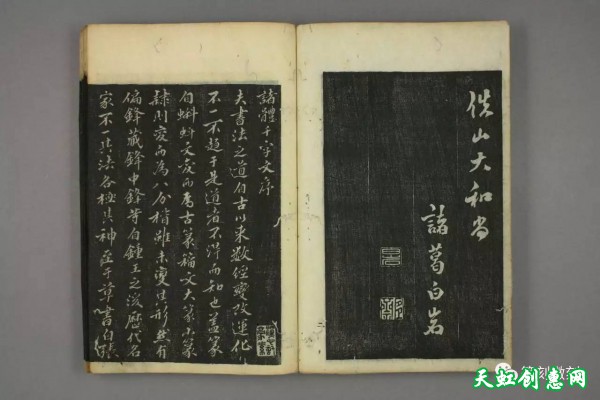 佚山大和尚
諸葛白岩
諸體千字文序
夫書法之道自古以来數經變改運化
不一不超于是道者不淂而知也蓋篆
自蝌蚪文變而為古篆籀文大篆小篆
隸則變而為八分楷雖未變其形然有
偏鋒藏鋒中鋒皆自鍾王之後歷代名
家不一其法各極其神至于草書自張
天虹创意网